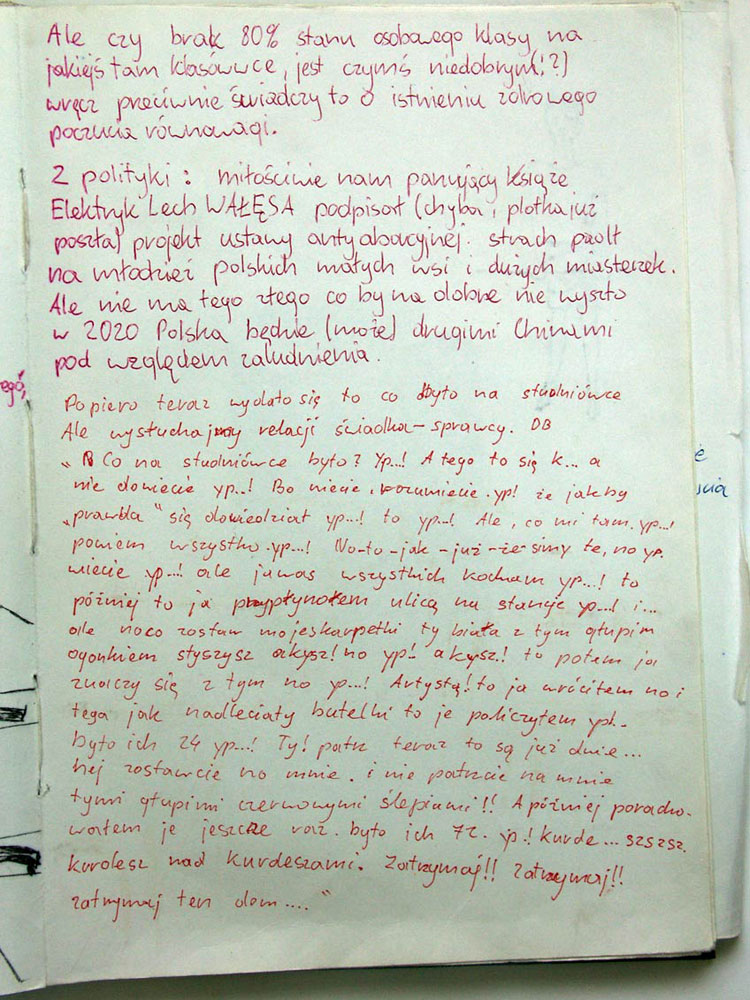 Ale czy brak 80% stanu osobowego klasy na
jakiejś tam klasówce, jest czymś niedobrym(!?)
wręcz przeciwnie świadczy to o istnieniu zdrowego
poczucia równowagi.
Z polityki: miłościwie nam panujący książe
Elektryk Lech WAŁĘSA podpisał (chyba, plotka już
poszła) projekt ustawy antyaborcyjnej. strach padł
na młodzież polskich małych wsi i dużych miasteczek.
Ale nie ma tego złego co by na dobre nie wyszło
w 2020 Polska będzie (może) drugimi Chinami
pod względem zaludnienia.
ego,
Dopiero teraz wydało się to co było na studniówce
Ale wysłuchajmy relacji świadka-sprawcy. DB
"Co na studniówce było? Yp..! A tego to się k... a
nie dowiecie yp..! Bo wiecie, rozumiecie.yp! że jakby
"prawda" się dowiedział yp...! to yp..! Ale, co mi tam.yp...!
powiem wszystko.yp...! No-to-jak-już-że simy te, no yp.
wiecie yp...! ale ja was wszystkich kocham yp...! to
później to ja przypłynołem ulicą na stancje yp...! i...
ale noco zostaw moje skarpetki ty biała z tym głupim
ogonkiem słyszysz akysz! no yp! akysz! to potem ja
znaczy się z tym no yp...! Artystą! to ja wróciłem no i
tega jak nadleciały butelki to je policzyłem yp!..
było ich 24 yp...! Ty! patrz teraz to są już dwie...
hej zostawcie no mnie. i nie patrzcie na mnie
tymi głupimi czerwonymi ślepiami!! A później poracho-
wałem je jeszcze raz. było ich 72. yp.! kurde... szszsz.
kurdesz nad kurdeszami. Zatrzymaj!! zatrzymaj!!
zatrzymaj ten dom...."